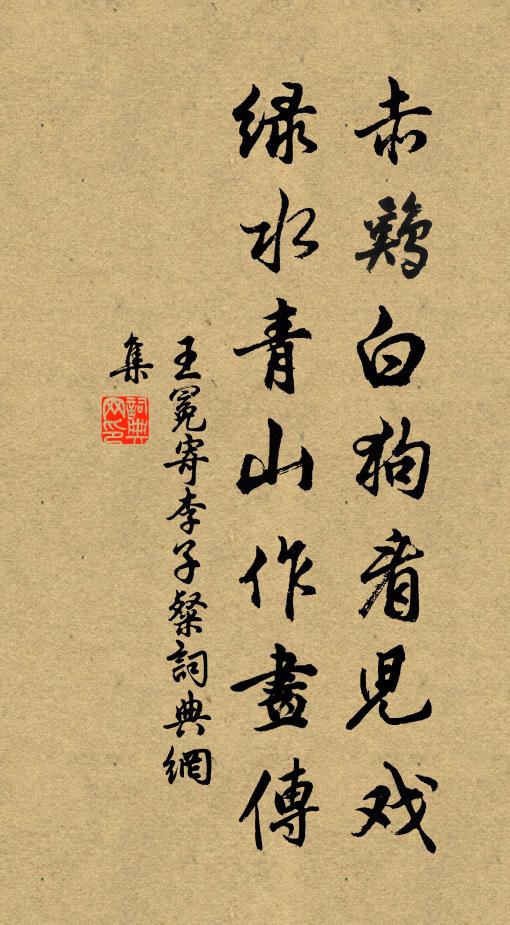 赤鷄白狗看児戏
緑水青山作畫傳
王冕寄李子粲詞典網
集
詞典網印